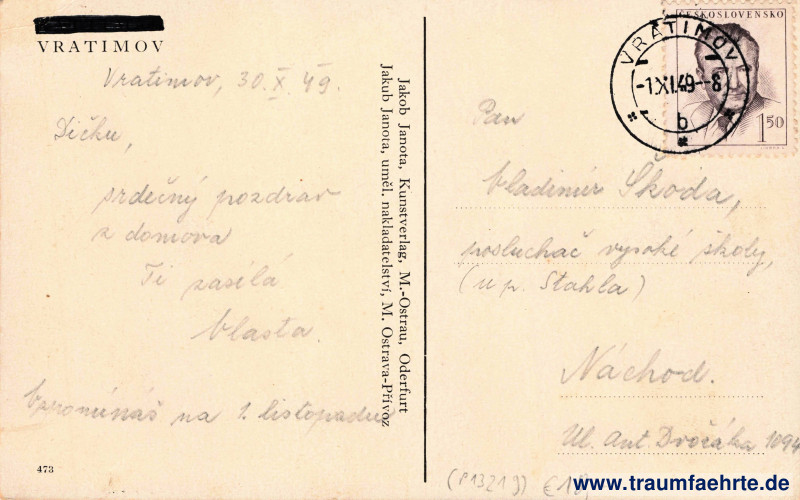 VRATIMOV
Vratimov, 30. X. 49.
Dičku,
srdečný pozdrav
z domova
Ti zasílá
Vlasta.
Vzpomínáš na 1. listopadu
473
Jakob Janota, Kunstverlag, M.-Ostrau, Oderfurt
Jakub Janota, uměl. nakladatelství, M. Ostrava-Přívoz
ČESKOSLOVENSKO
1 50
VRATIMOV
-1.XI.49--8
b
Pan
Vladimír Škoda,
posluchač vysoké školy,
(u p. Stahla)
Náchod.
Ul. Ant. Dvořáka 1094
(P13219)
www.traumfaehrte.de